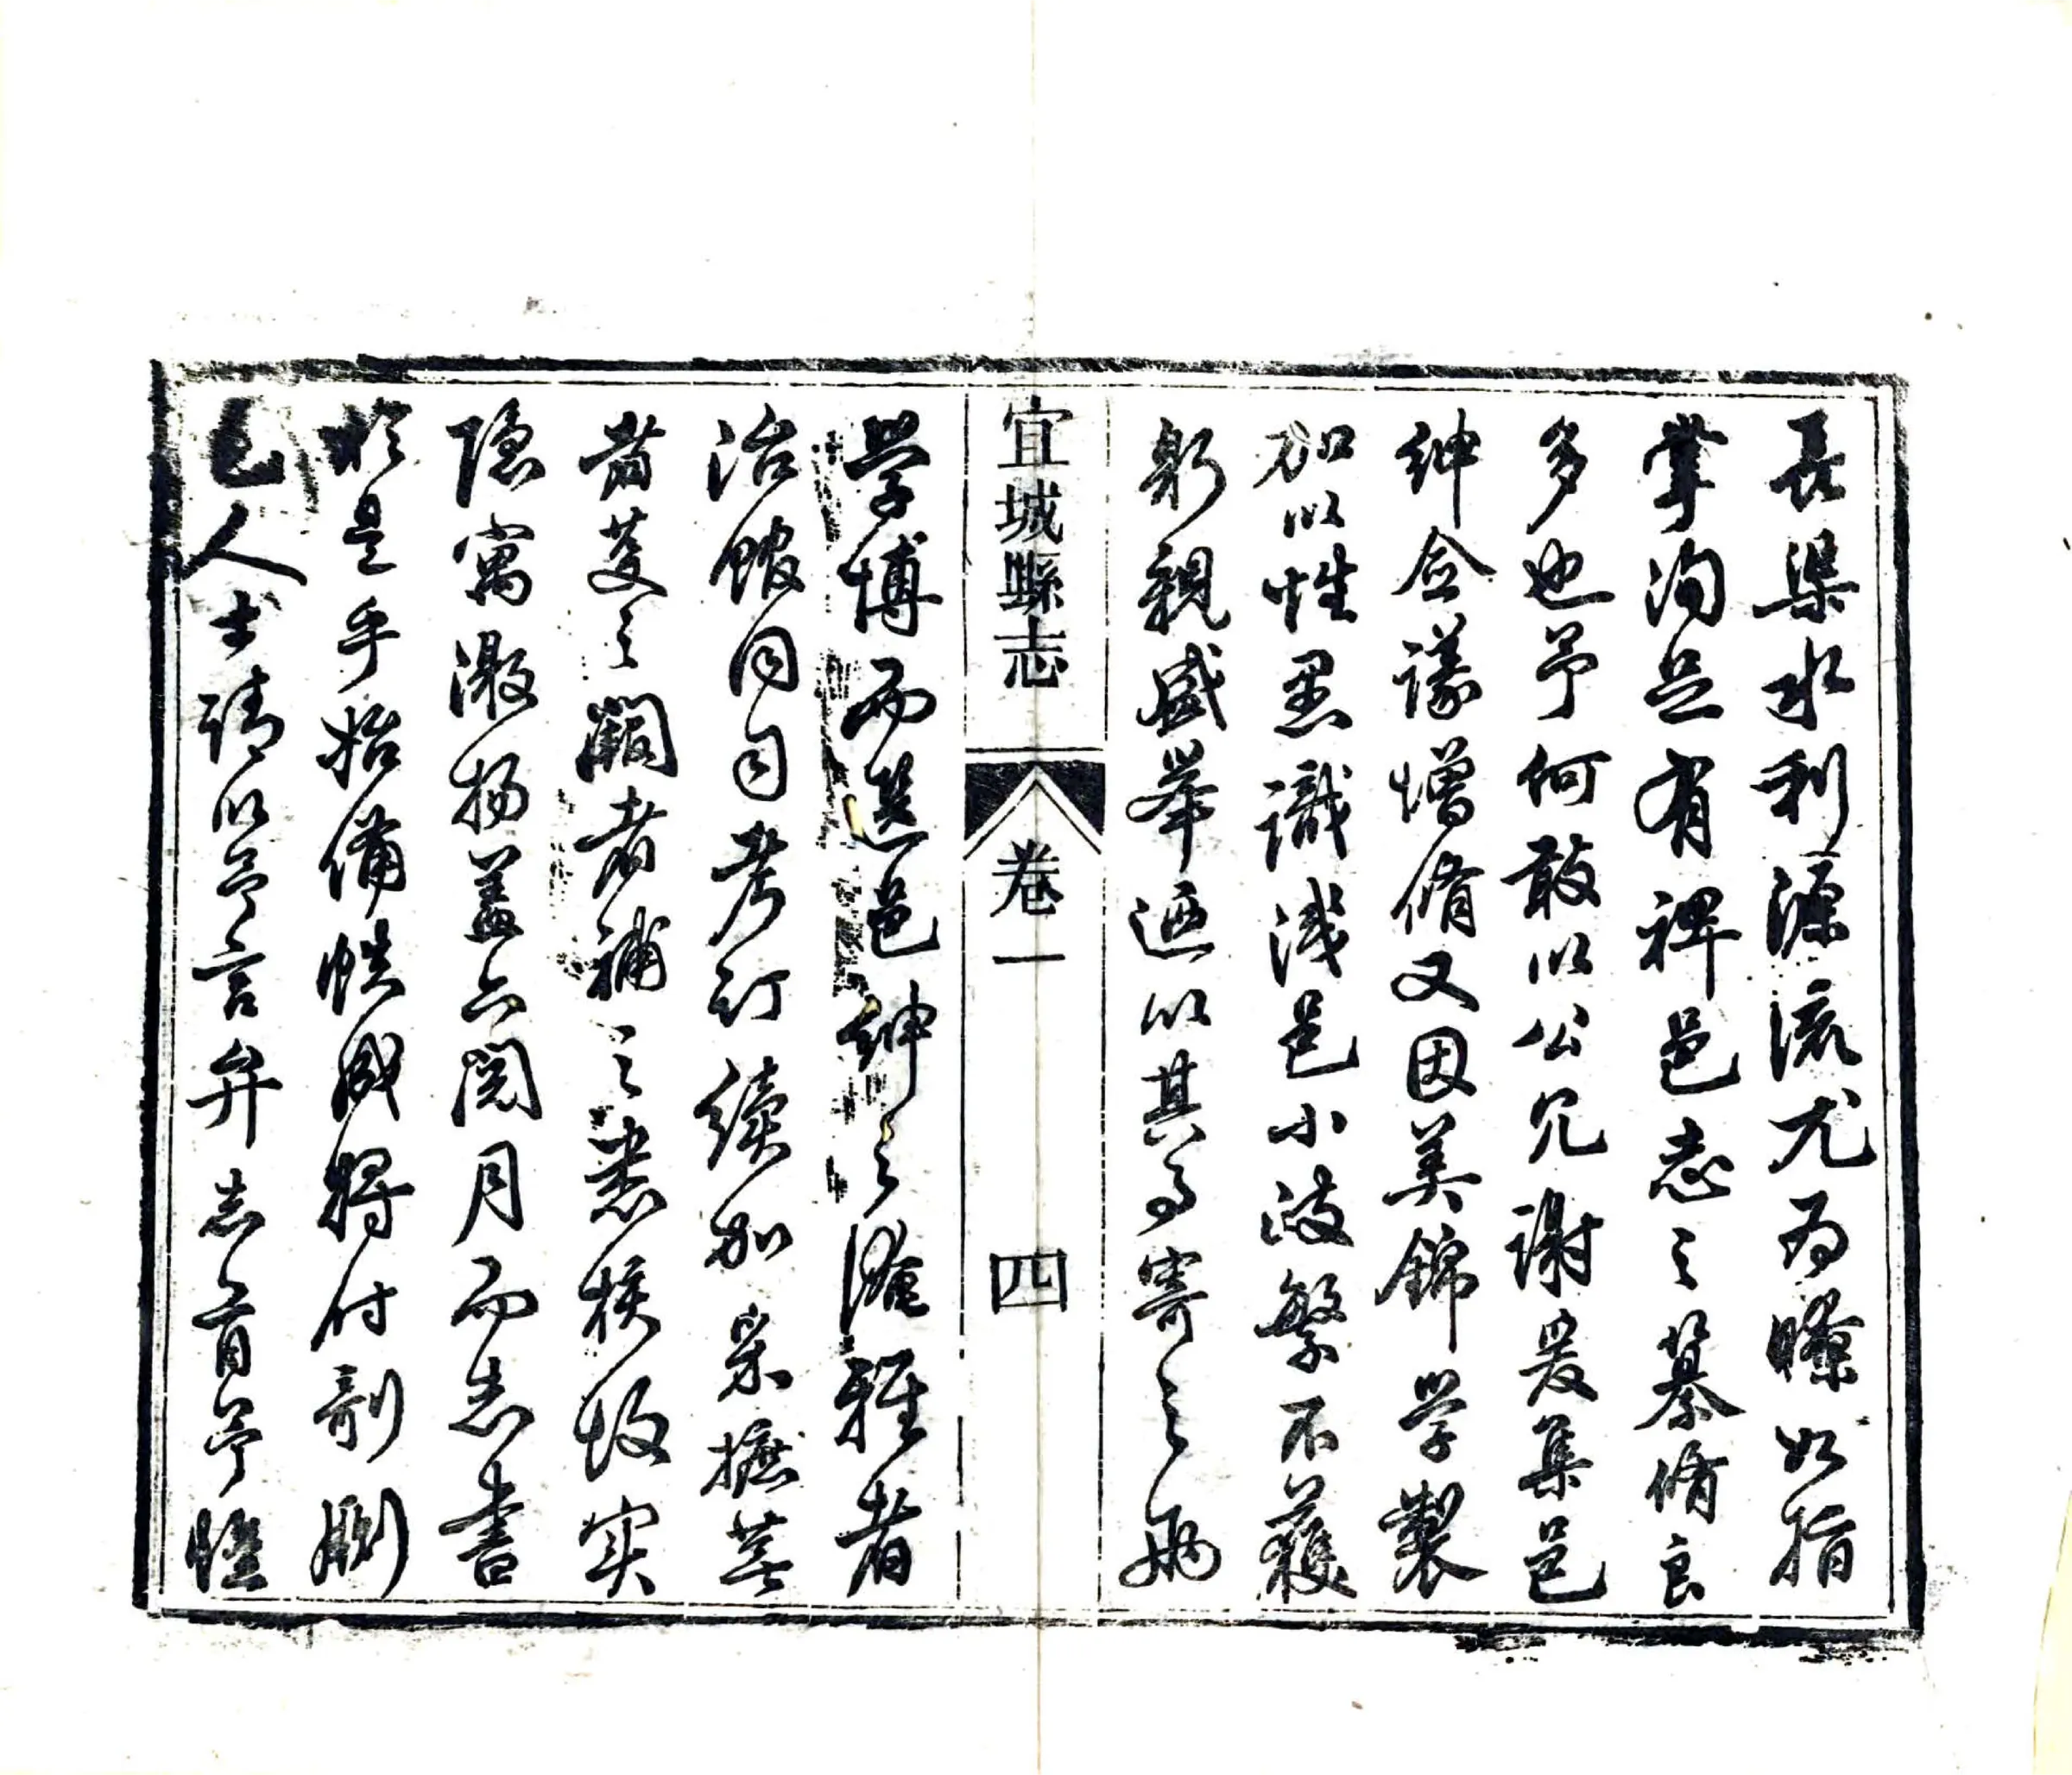 長渠水利源流尤为瞭如指
掌洵足有裨邑志之纂脩良
多也予何敢以公冗謝爰集邑
紳僉議增脩又因美錦学製
加以性愚識淺邑小政繁不獲
躬親盛舉迺以其事寄之兩
宜城縣志 卷一 四
学博而选邑紳之淹雅者
治館同司考訂續加采摭蕪
者芟之闕者補之悉核故实
隐寓激扬蓋六閱月而志書
於是乎始備帙成將付剞劂
邑人士請以予言弁志首予惟